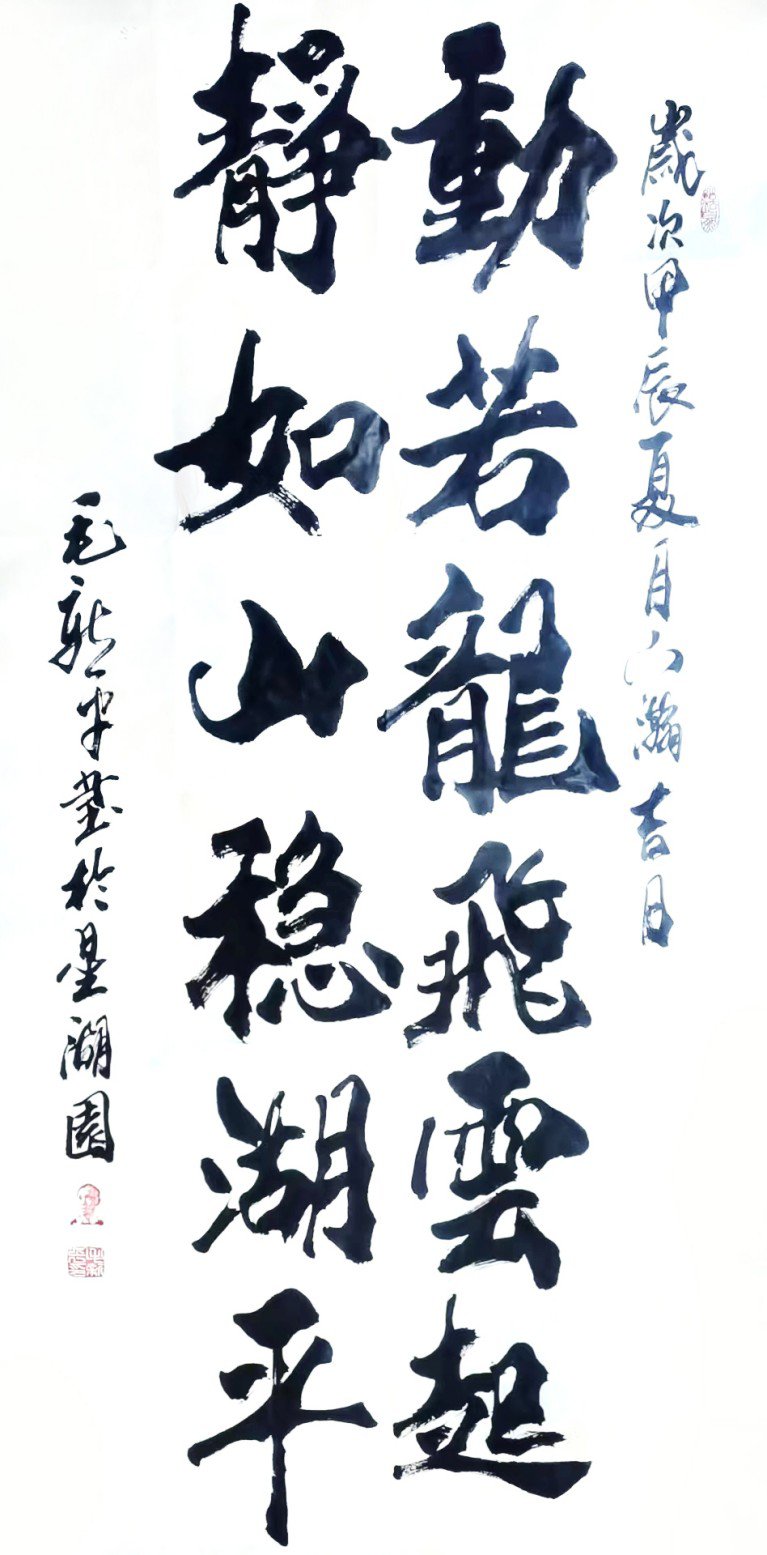 歲次甲辰夏月 瀚 吉月
動若龍飛雲起
靜如山稳湖平
毛新平 於星湖園